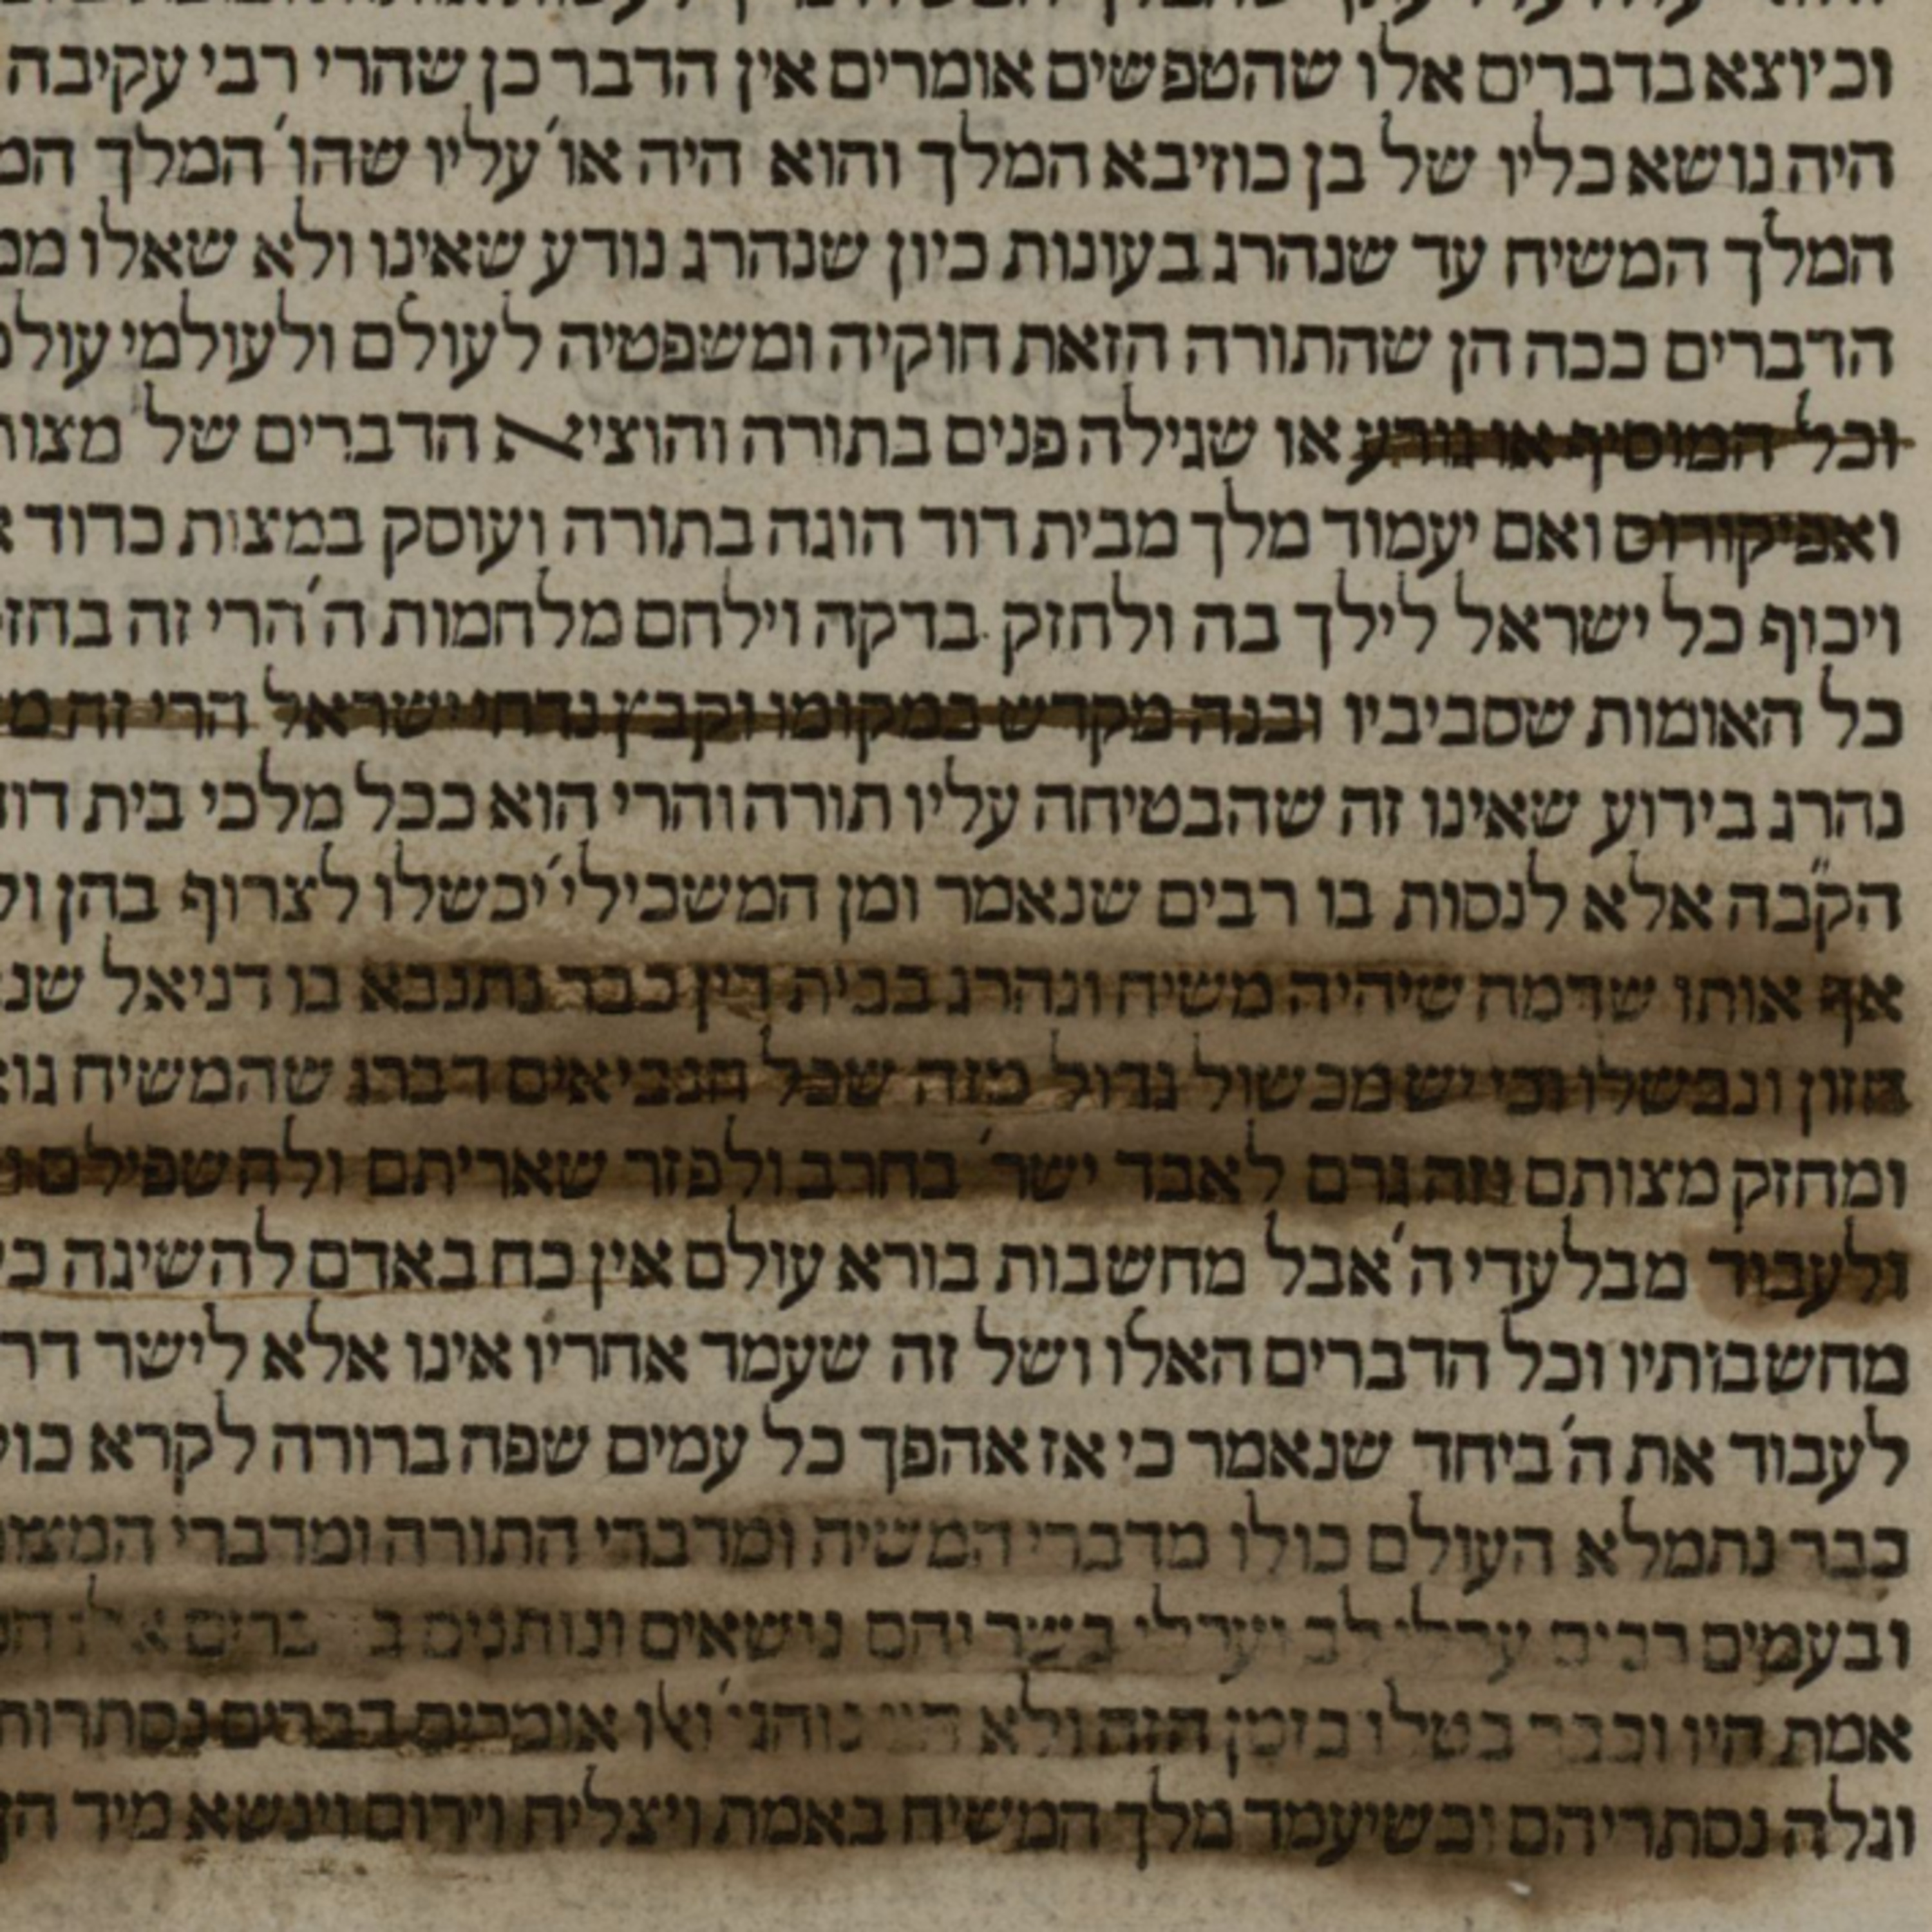 וכיוצא בדברים אלו שהטפשים אומרים אין הדבר כן שהרי רבי עקיבה
היה נושא כליו של בן כוזיבא המלך והוא היה או' עליו שהו' המלך המ
המלך המשיח עד שנהרג בעונות כיון שנהרג נודע שאינו ולא שאלו ממ
הדברים ככה הן שהתורה הזאת חוקיה ומשפטיה לעולם ולעולמי עולמ
וכל המוסיף או גורע או שגילה פנים בתורה והוציא הדברים של מצות
ואפיקורוס ואם יעמוד מלך מבית דוד הוגה בתורה ועוסק במצות כדוד א
ויכוף כל ישראל לילך בה ולחזק בדקה וילחם מלחמות ה' הרי זה בחז
כל האומות שסביביו ובנה מקדש במקומו וקבץ נדחי ישראל הרי זה מ
נהרג בידוע שאינו זה שהבטיחה עליו תורה והרי הוא ככל מלכי בית דוד
הק"בה אלא לנסות בו רבים שנאמר ומן המשכילי' יכשלו לצרוף בהן ול
אף אותו שדמה שיהיה משיח ונהרג בבית דין כבר נתנבא בו דניאל שנ
חזון ונכשלו וכי יש מכשול גדול מזה שכל הנביאים דברו שהמשיח גוא
ומחזק מצותם וזה גרם לאבד ישר' בחרב ולפזר שאריתם ולהשפילם
ולעבוד מבלעדי ה' אבל מחשבות בורא עולם אין כח באדם להשיגה כי
מחשבותיו וכל הדברים האלו ושל זה שעמד אחריו אינו אלא לישר דר
לעבוד את ה' ביחד שנאמר כי אז אהפך כל עמים שפה ברורה לקרא כול
כבר נתמלא העולם כולו מדברי המשיח ומדברי התורה ומדברי המצות
ובעמים רבים ערלי לב וערלי בשר והם נושאים ונותנים
אמת היו וכבר בטלו בזמן הזה ולא היו נוהגי' ואלו אומרים דברים נסתרות
וגלה נסתריהם וכשיעמד מלך המשיח באמת ויצליח וירום וינשא מיד הן